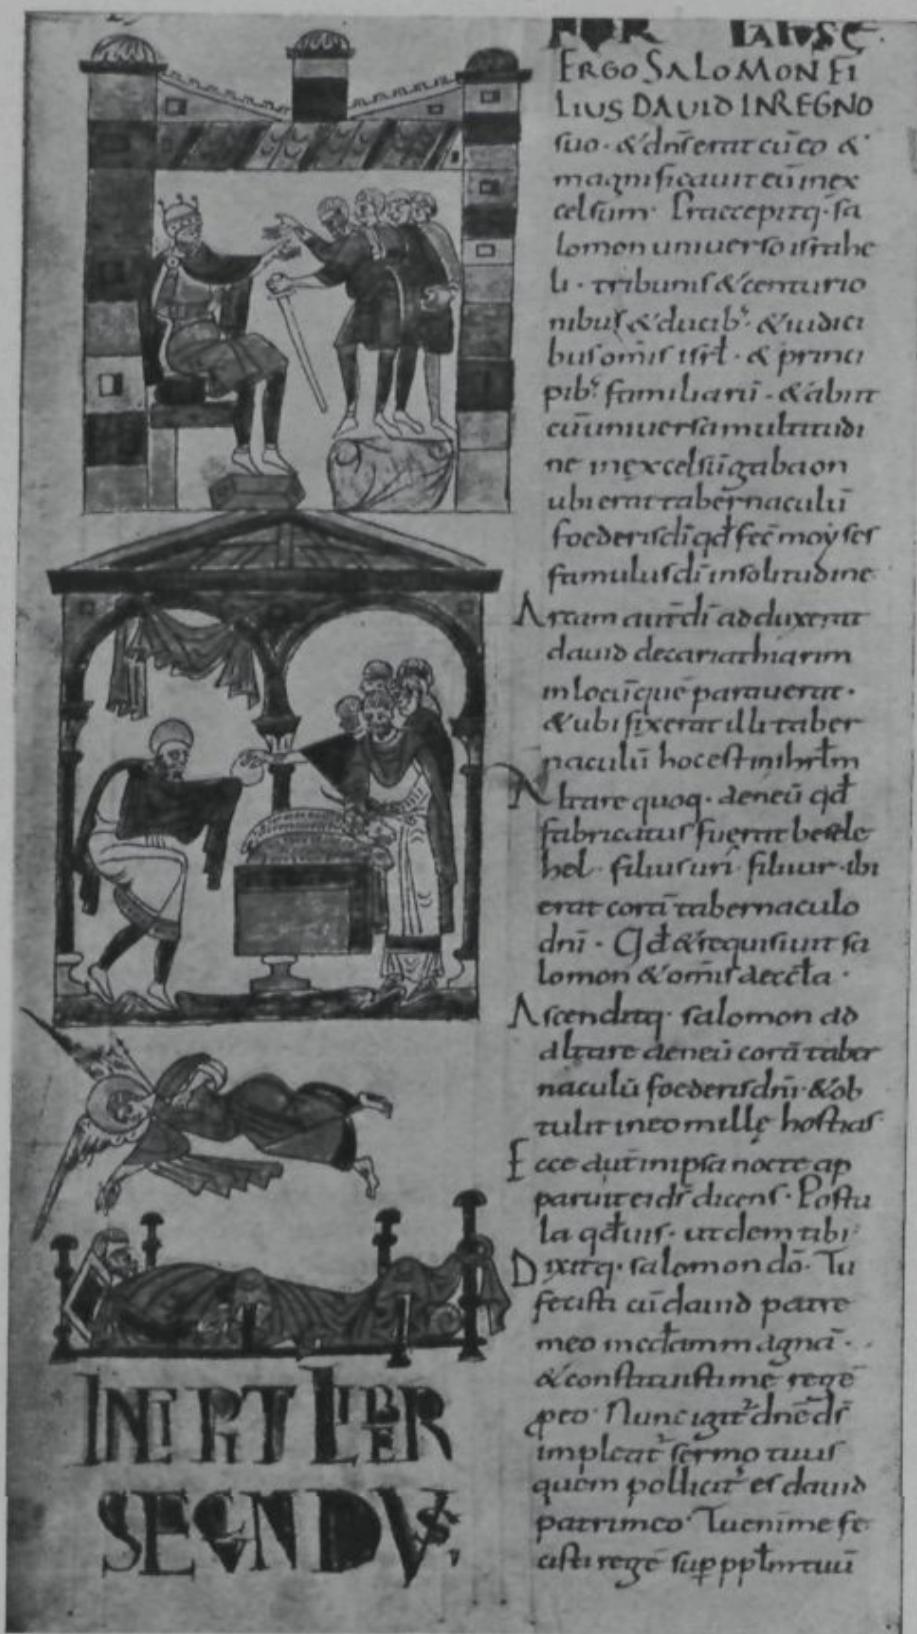 ERGO SALOMON FI
LIUS DAVID IN REGNO
suo · & dñs erat cū eo &
magnificavit eū in ex
celsum · Praecepitq · sa
lomon universo israhe
li · tribunis & centurio
nibus & ducib; · & iudici
bus omīs isrł · & princi
pib; familiarū · & abiit
cū universa multitudi
ne in excelsū gabaon
ubi erat tabernaculū
foederis dī qđ fec̄ moyses
famulus dī in solitudine
Arcam autē dī adduxerat
david de cariathiarim
in locū quē paraverat ·
& ubi fixerat illi taber
naculū hoc est in hrłm
Altare quoq · aeneū qđ
fabricatus fuerat besele
hel · filius uri · filii ur · ibi
erat corā tabernaculo
dnī · Qđ & requisivit sa
lomon & omīs aeccła ·
Ascenditq · salomon ad
altare aeneū corā taber
naculū foederis dnī · & ob
tulit in eo millę hostias
Ecce autē in ipsa nocte ap
paruit ei ds̄ dicens · Postu
la qđ vis · ut dem tibi ·
Dixitq · salomon dō · Tu
fecisti cū david patre
meo miscđam magnā ·
& constituisti me regē
p̱ eo · Nunc igit dñe ds̄
impleat sermo tuus
quem pollicit es david
patri meo · Tu enim me fe
cisti regē sup̱ pplm tuū
INCIPIT LIBER
SECUNDVS